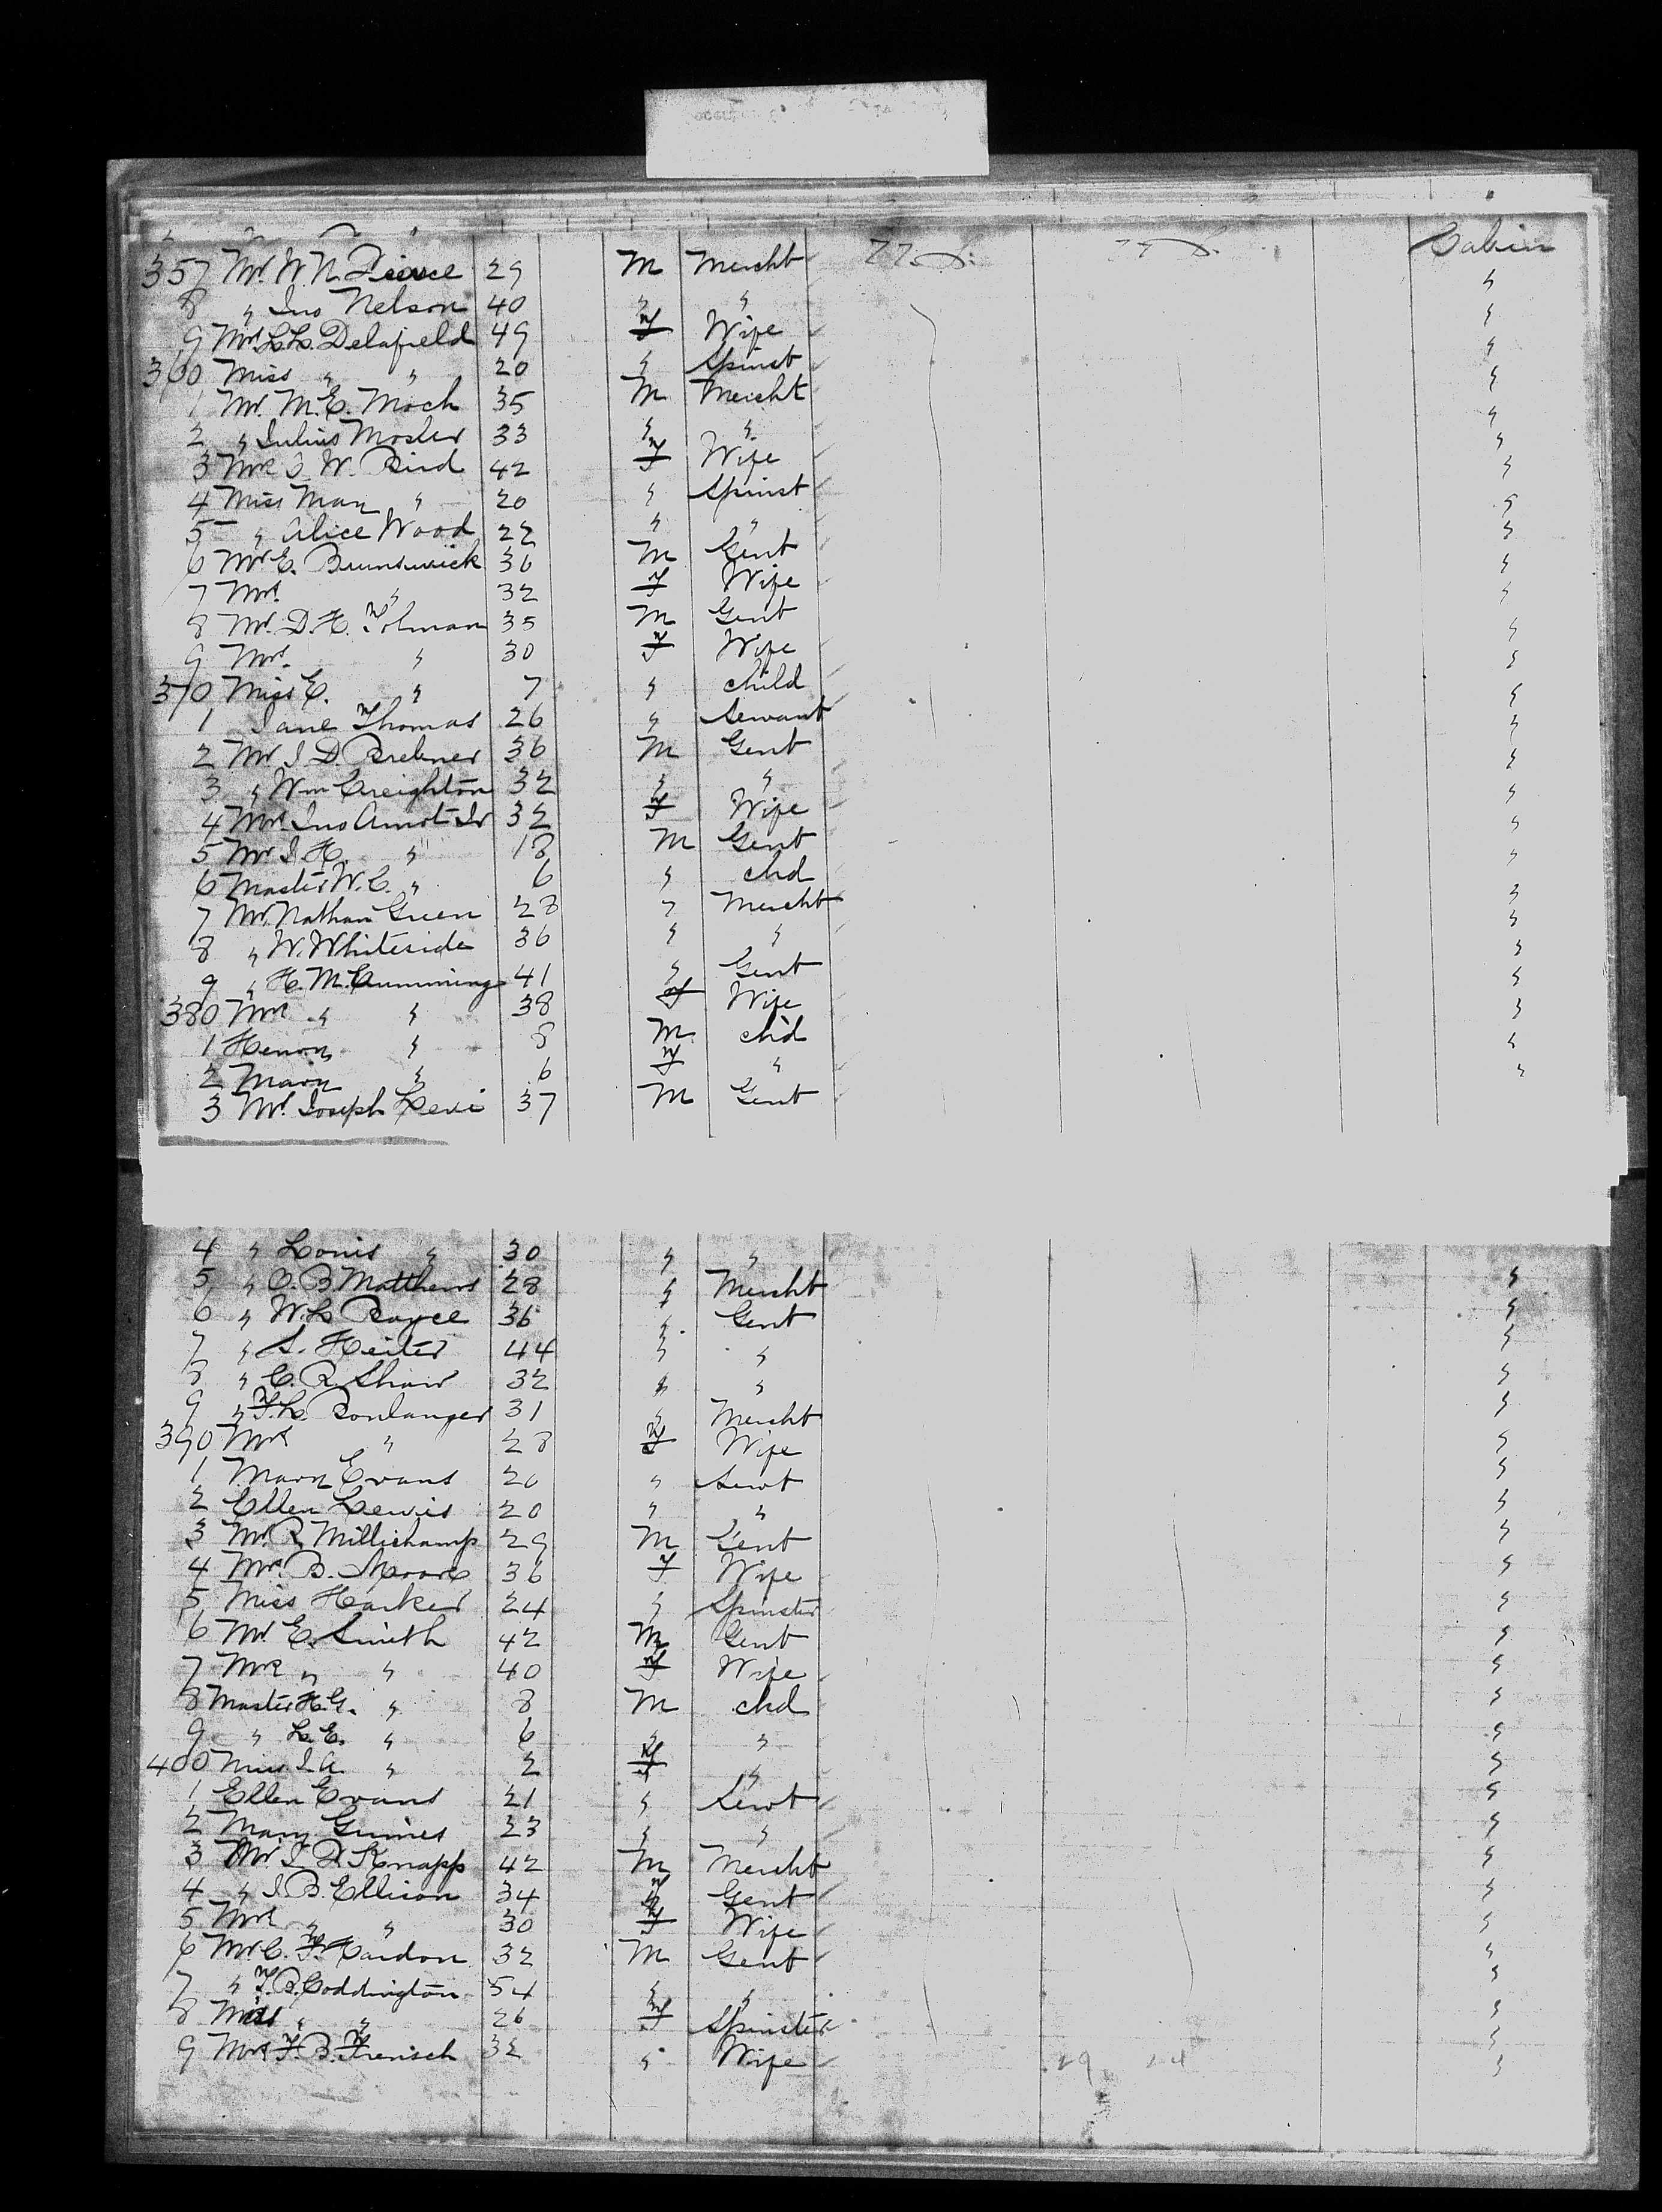 357 Mr. W. N. Pierce 29 M Mercht U.S. U.S. Cabin
8 " Jno Nelson 40 " " "
9 Mrs. L. L. Delafield 49 F Wife "
360 Miss " " 20 " Spinst "
1 Mr. M. E. Moch 35 M Mercht "
2 " Julius Mosler 33 " " "
3 Mrs O W. Bird 42 F Wife "
4 Miss Mary " 20 " Spinst "
5 " Alice Wood 22 " " "
6 Mr. E. Brunswick 36 M Gent "
7 Mrs. " 32 F Wife "
8 Mr. D. H. Tolman 35 M Gent "
9 Mrs. " 30 F Wife "
370 Miss E. " 7 " child "
1 Jane Thomas 26 " Servant "
2 Mr J D. Brebner 36 M Gent "
3 " Wm Creighton 32 " " "
4 Mrs. Jno Arnot Jr 32 F Wife "
5 Mr. J. H. " 18 M Gent "
6 Master W. C. " 6 " chd "
7 Mr. Nathan Green 28 " Mercht "
8 " W. Whiteside 36 " " "
9 " H. M. Cummings 41 " Gent "
380 Mrs " " 38 F Wife "
1 Henry " 8 M chd "
2 Mary " 6 F " "
3 Mr. Joseph Levi 37 M Gent
4 " Louis " 30 " "
5 " O. B Matthews 28 " Mercht "
6 " W. L. Boyce 36 " Gent "
7 " S. Heiter 44 " " "
8 " C. R. Shaw 32 " " "
9 " F. L. Boulanger 31 " Mercht "
390 Mrs " 28 F Wife "
1 Mary Evans 20 " Servt "
2 Ellen Lewis 20 " " "
3 Mr. R Millichamp 29 M Gent "
4 Mrs. B. Moore 36 F Wife "
5 Miss Harker 24 " Spinster "
6 Mr. E. Smith 42 M Gent "
7 Mrs " " 40 F Wife "
8 Master H. G. " 8 M chd "
9 " L. E. " 6 " " "
400 Miss J. A. " 2 F " "
1 Ellen Evans 21 " Servt "
2 Mary Grimes 23 " " "
3 Mr. J. H. Knapp 42 M Mercht "
4 " J. B. Ellison 34 " Gent "
5 Mrs " " 30 F Wife "
6 Mr. C. F. Hardon 32 M Gent "
7 " T. B. Coddington 54 " " "
8 Miss " " 26 F Spinster "
9 Mrs F. B. Frenisch 32 " Wife "